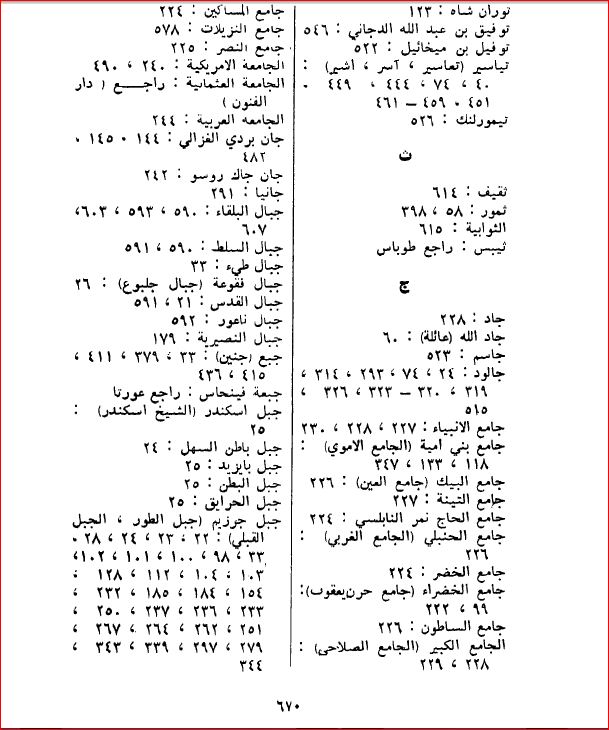 توران شاه : ١٢٣
توفيق بن عبد الله الدجاني : ٥٤٦
توفيل بن ميخائيل : ٥٢٢
تياسير (تعاسير ، آسر ، أشير) :
٤٠ ، ٧٤ ، ٤٤٤ ، ٤٤٩ ٠
٤٥١ ٠ ٤٥٩ – ٤٦١
تيمورلنك : ٥٢٦
ث
ثقيف : ٦١٤
ثمور : ٥٨ ، ٣٩٨
الثوابية : ٦١٥
ثيبس : راجع طوباس
ج
جاد : ٢٢٨
جاد الله (عائلة) : ٦٠
جاسم : ٥٢٣
جالود : ٢٤ ، ٧٤ ، ٢٩٣ ، ٣١٤ ،
٣١٩ ، ٣٢٠ – ٣٢٣ ، ٣٢٦ ،
٥١٥
جامع الانبياء : ٢٢٧ ، ٢٢٨ ، ٢٣٠
جامع بني أمية (الجامع الاموي) :
١١٨ ، ١٣٣ ، ٣٤٧
جامع البيك (جامع العين) : ٢٢٦
جامع التينة : ٢٢٧
جامع الحاج نمر النابلسي : ٢٢٤
جامع الحنبلي (الجامع الغربي) :
٢٢٦
جامع الخضر : ٢٢٤
جامع الخضراء (جامع حزن يعقوب):
٩٩ ، ٢٢٢
جامع الساطون : ٢٢٦
الجامع الكبير (الجامع الصلاحي) :
٢٢٨ ، ٢٢٩
جامع المساكين : ٢٢٤
جامع النزيلات : ٥٧٨
جامع النصر : ٢٢٥
الجامعة الامريكية : ٢٤٠ ، ٤٩٠
الجامعة العثمانية : راجـــع ( دار
الفنون )
الجامعه العربية : ٢٤٤
جان بردي الغزالي : ١٤٤ ٠ ١٤٥ ٠
٤٨٢
جان جاك روسو : ٢٤٢
جانيا : ٢٩١
جبال البلقاء : ٥٩٠ ، ٥٩٣ ، ٦٠٣،
٦٠٧
جبال السلط : ٥٩٠ ، ٥٩١
جبال طيء : ٣٣
جبال فقوعة (جبال جلبوع) : ٢٦
جبال القدس : ٢١ ، ٥٩١
جبال ناعور : ٥٩٢
جبال النصيرية : ١٧٩
جبع (جنين) : ٣٣ ، ٣٧٩ ، ٤١١ ،
٤١٥ ، ٤٣٦
جبعة فينحاس : راجع عورتا
جبل اسكندر (الشيخ اسكندر) :
٢٥
جبل باطن السهل : ٢٤
جبل بايزيد : ٢٥
جبل البطن : ٢٥
جبل الحرايق : ٢٥
جبل جرزيم (جبل الطور ، الجبل
القبلي) : ٢٢ ، ٢٣ ، ٢٤ ، ٢٨ ٠
٣٣ ، ٩٨ ، ١٠٠ ، ١٠١ ، ١٠٢،
١٠٣ ، ١٠٤ ، ١١٢ ، ١٢٨ ،
١٥٤ ، ١٨٤ ، ١٨٥ ، ٢٣٢ ،
٢٣٣ ، ٢٣٦ ، ٢٣٧ ، ٢٥٠ ،
٢٥١ ، ٢٦٢ ، ٢٦٤ ، ٢٦٧ ،
٢٧٩ ، ٢٩٧ ، ٣٣٩ ، ٣٤٣ ،
٣٤٤
٦٧٠